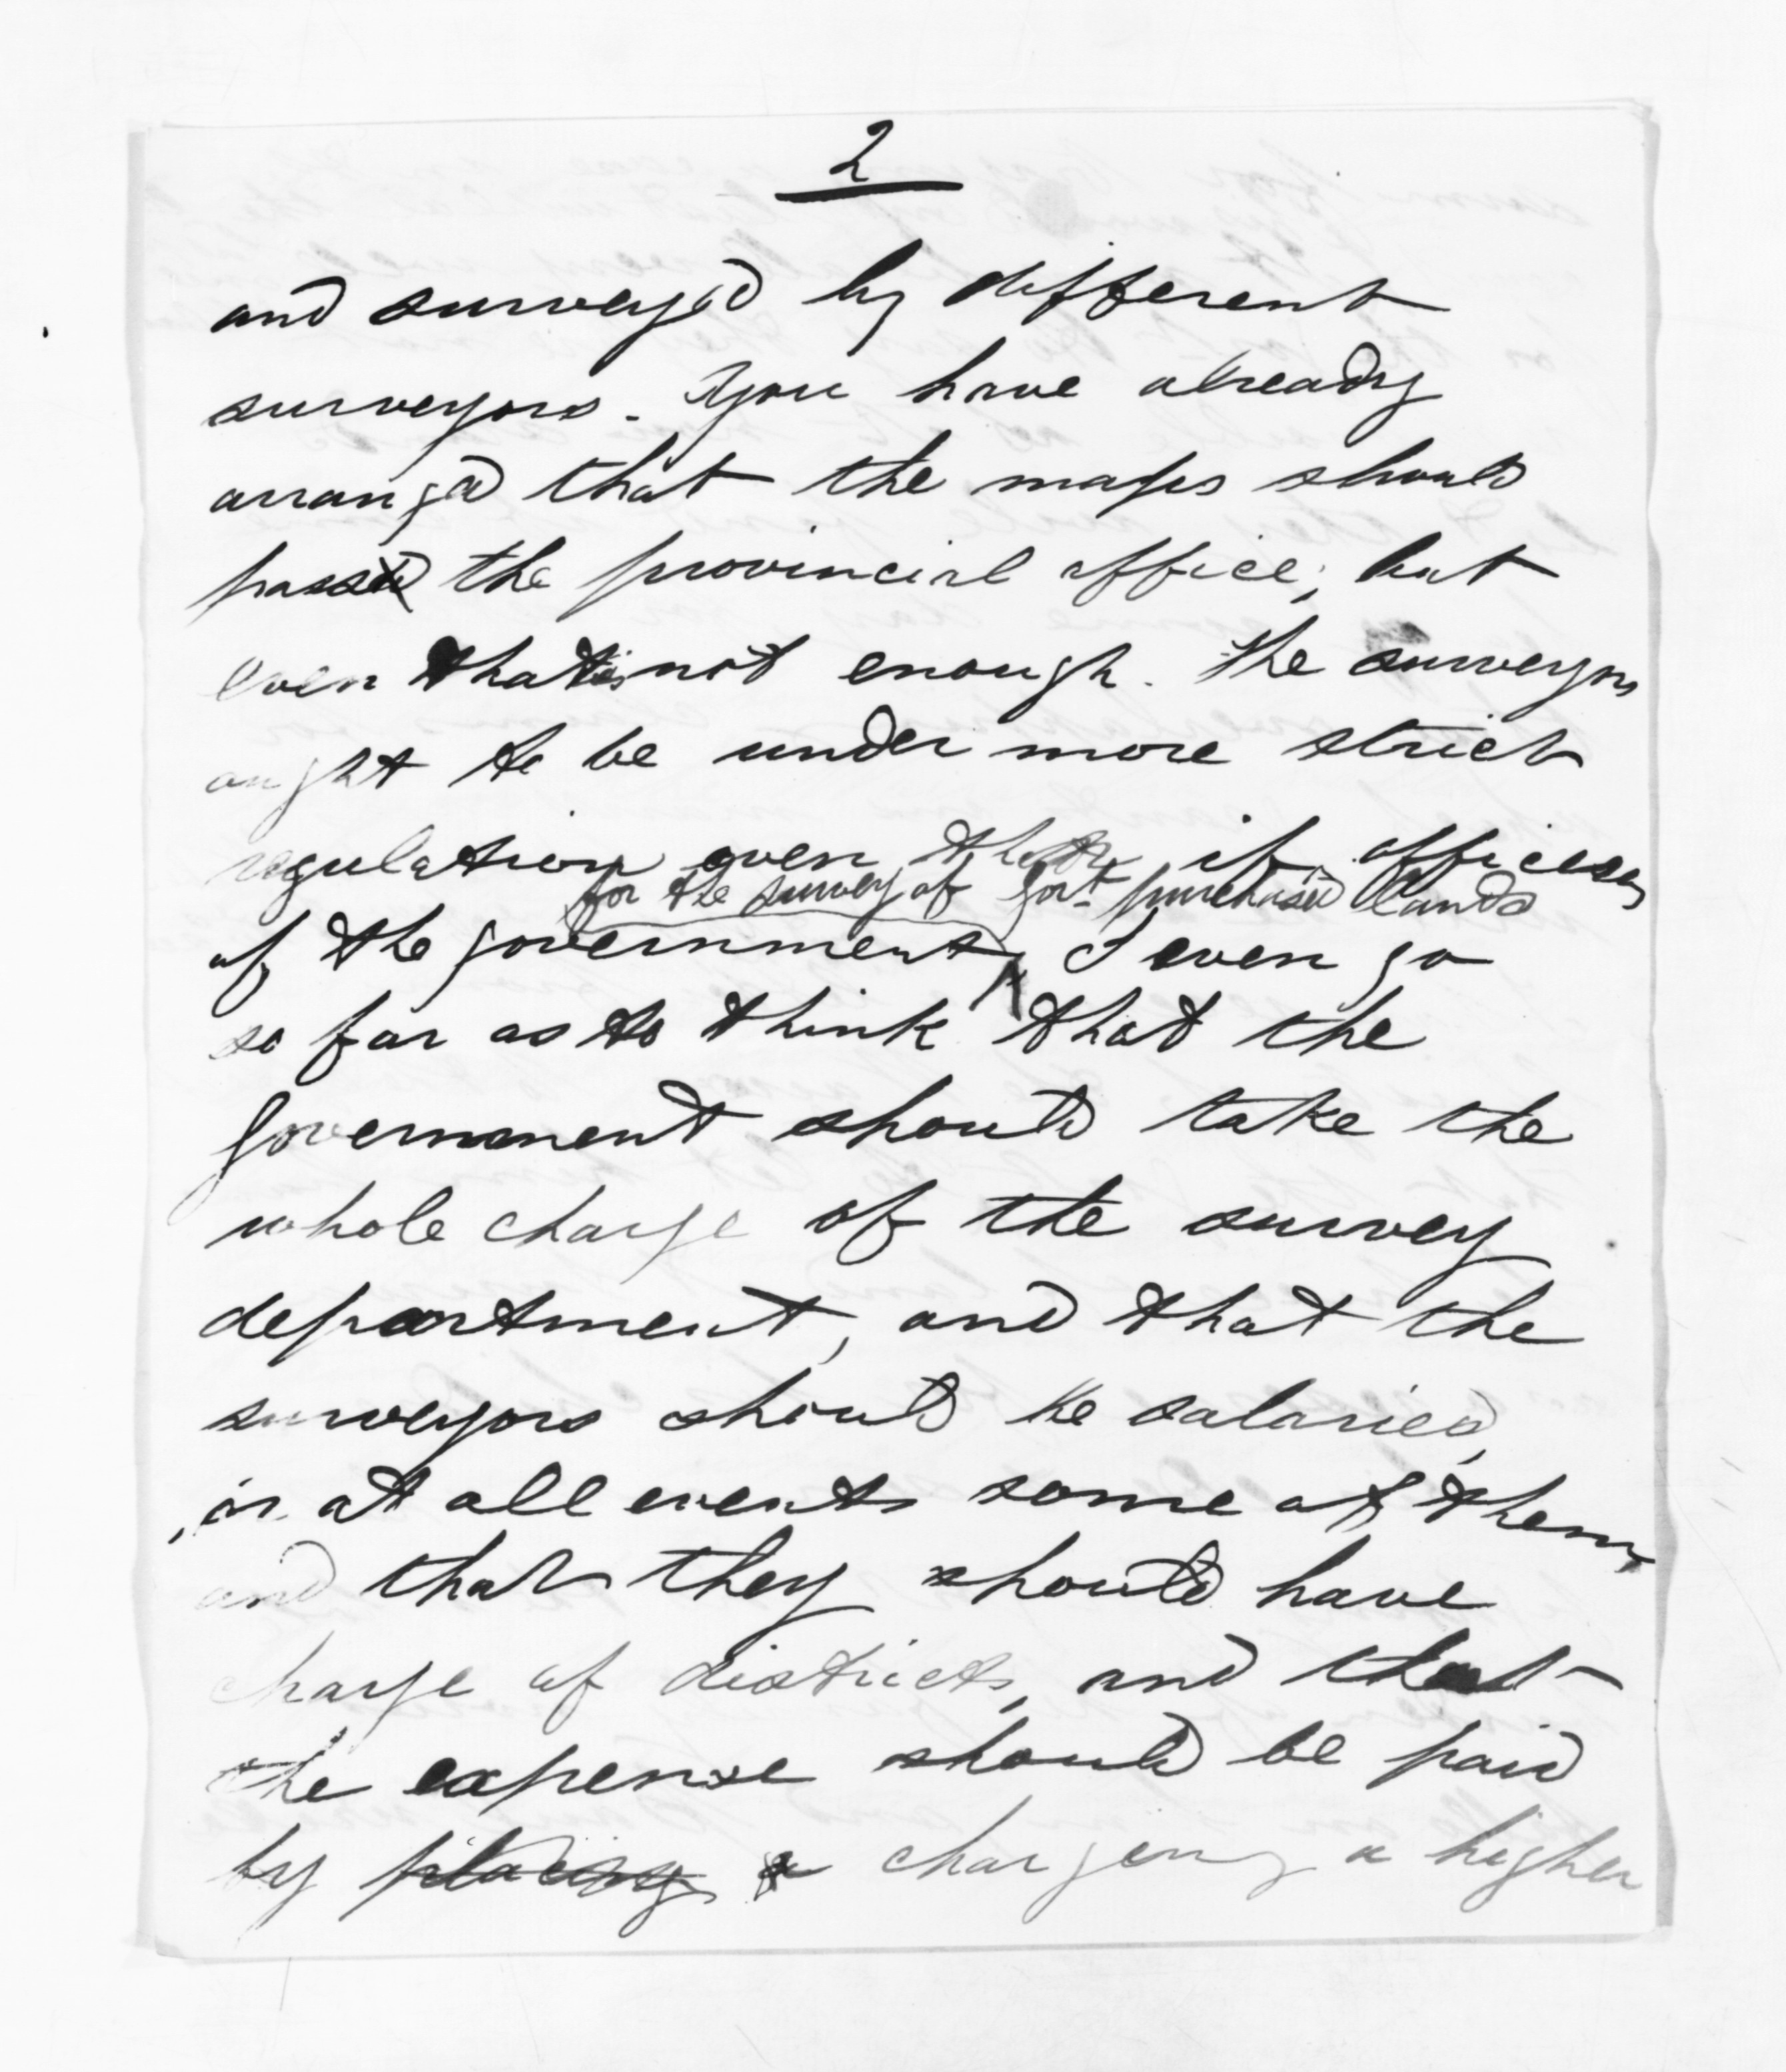 2
and surveyed by different
surveyors. You have already
arranged that the maps should
pass the provincial office; but
even that is not enough. The surveyors
ought to be under more strict
regulation even if officers
for the survey of Govt purchased lands
of the government, I even go
so far as to think that the
Government should take the
whole charge of the survey
department, and that the
surveyors should be salaried,
or at all events some of them
and that they should have
charge of districts, and that
the expense should be paid
by placing a charging a higher